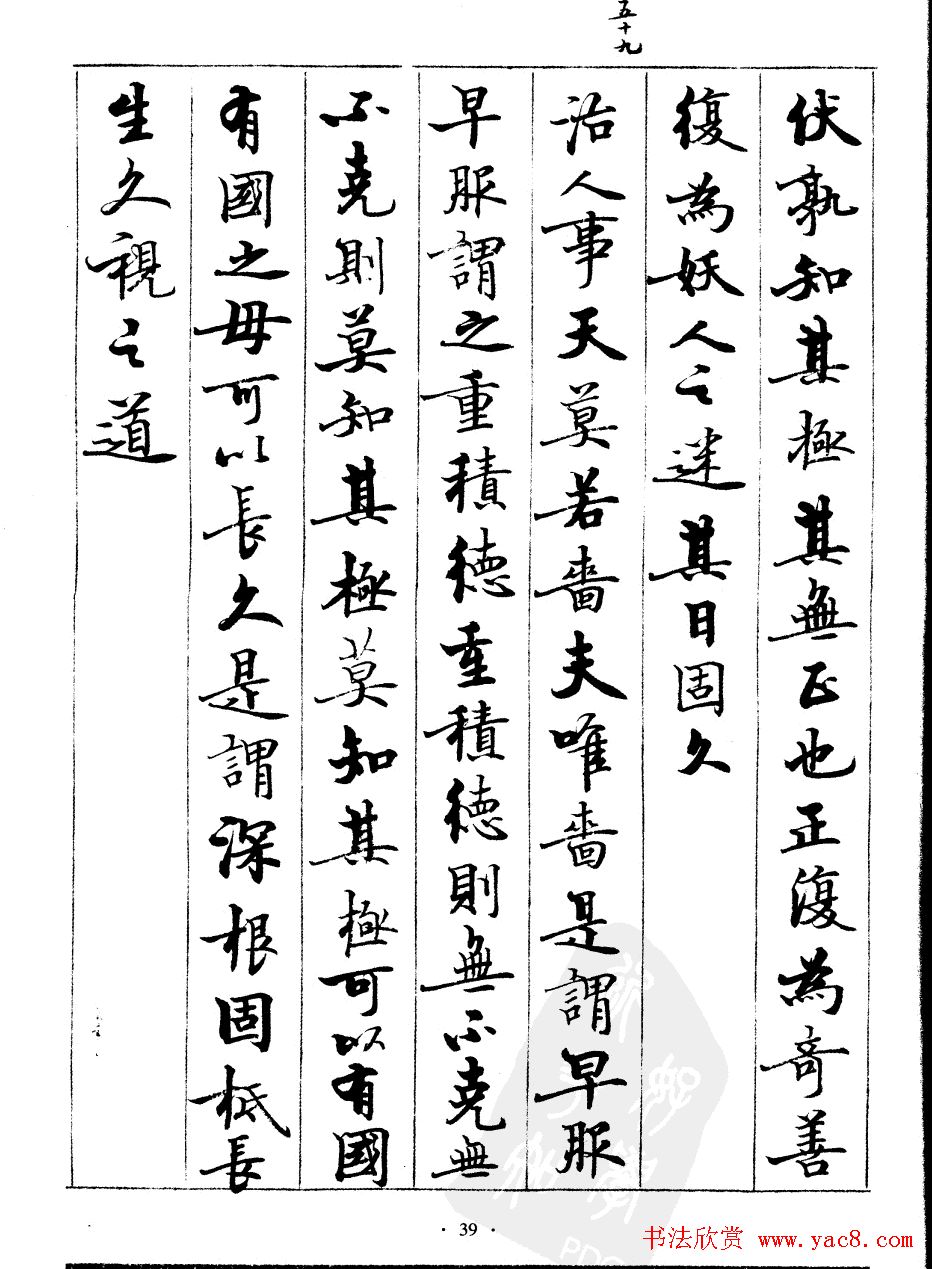 五十九
伏孰知其極其無正也正復為奇善
復為妖人之迷其日固久
治人事天莫若嗇夫唯嗇是謂早服
早服謂之重積德重積德則無不克無
不克則莫知其極莫知其極可以有國
有國之母可以長久是謂深根固柢長
生久視之道
· 39 ·
书法欣赏 www.yac8.com